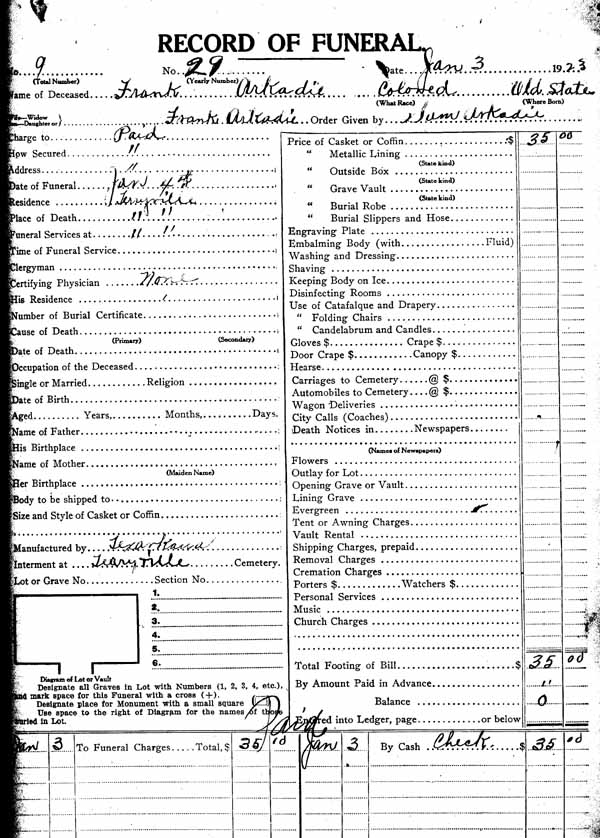 RECORD OF FUNERAL
No. 9 No. 29 Date Jan 3 1923
(Total Number) (Yearly Number)
Name of Deceased Frank Arkadie Colored Old State
(What Race) (Where Born)
Wife—Widow
Son—Daughter or} Frank Arkadie Order Given by Sum Arkadie
Charge to Paid
How Secured "
Address "
Date of Funeral Jan 4th
Residence
Place of Death " "
Funeral Services at " "
Time of Funeral Service
Clergyman
Certifying Physician None
His Residence
Number of Burial Certificate
Cause of Death
(Primary) (Secondary)
Date of Death
Occupation of the Deceased
Single or Married Religion
Date of Birth
Aged Years, Months, Days.
Name of Father
His Birthplace
Name of Mother
(Maiden Name)
Her Birthplace
Body to be shipped to
Size and Style of Casket or Coffin
Manufactured by Texarkana
Interment at Cemetery.
Lot or Grave No. Section No.
1.
2.
3.
4.
5.
6.
Diagram of Lot or Vault
Designate all Graves in Lot with Numbers (1, 2, 3, 4, etc.),
and mark space for this Funeral with a cross (+).
Designate place for Monument with a small square
Use space to the right of Diagram for the names of those
buried in Lot.
Price of Casket or Coffin $ 35 00
" Metallic Lining
(State kind)
" Outside Box
(State kind)
" Grave Vault
(State kind)
" Burial Robe
" Burial Slippers and Hose
Engraving Plate
Embalming Body (with Fluid)
Washing and Dressing
Shaving
Keeping Body on Ice
Disinfecting Rooms
Use of Catafalque and Drapery
" Folding Chairs
" Candelabrum and Candles
Gloves $ Crape $
Door Crape $ Canopy $
Hearse
Carriages to Cemetery @ $
Automobiles to Cemetery @ $
Wagon Deliveries
City Calls (Coaches)
Death Notices in Newspapers
(Names of Newspapers)
Flowers
Outlay for Lot
Opening Grave or Vault
Lining Grave
Evergreen
Tent or Awning Charges
Vault Rental
Shipping Charges, prepaid
Removal Charges
Cremation Charges
Porters $ Watchers $
Personal Services
Music
Church Charges
Total Footing of Bill $ 35 00
By Amount Paid in Advance "
Balance 0
Paid
Entered into Ledger, page or below
Jan 3 To Funeral Charges Total, $ 35 00 Jan 3 By Cash Check $ 35 00